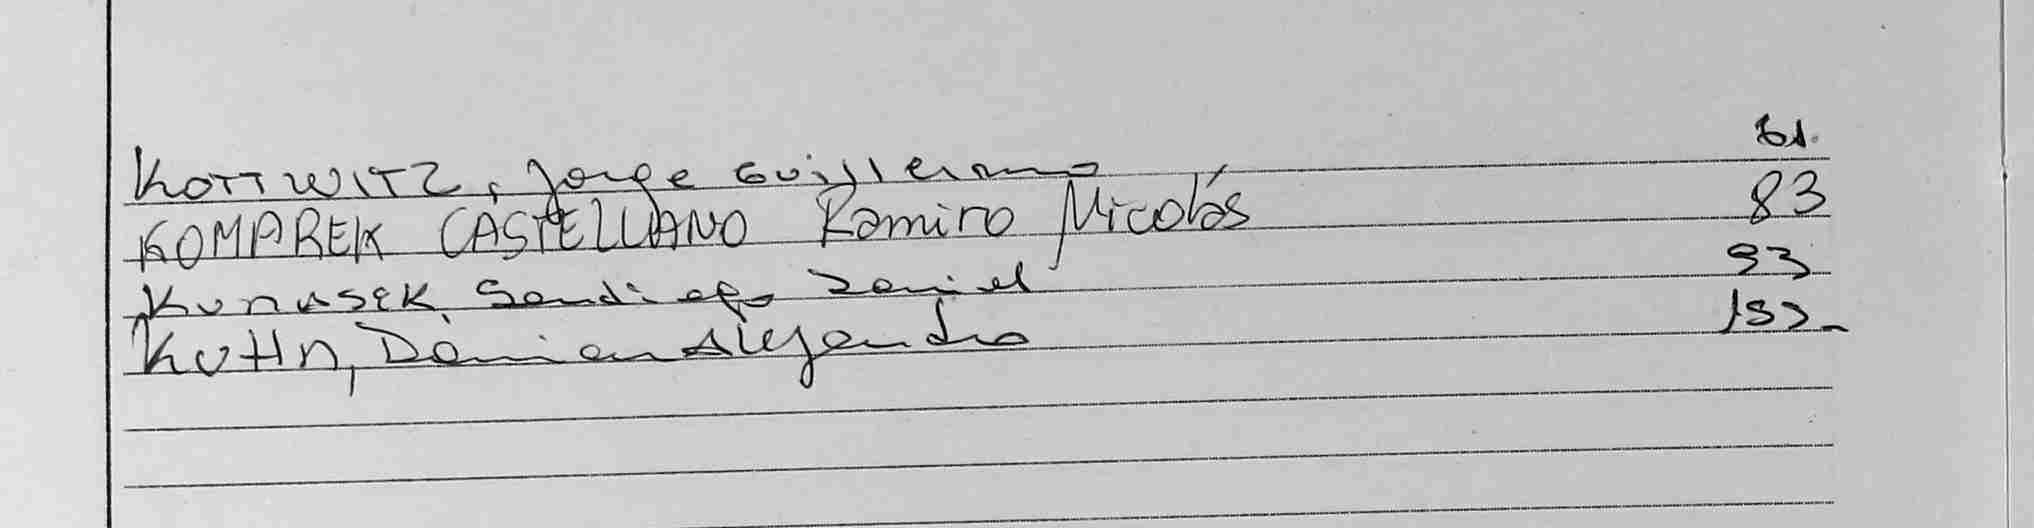 KOTTWITZ, Jorge Guillermo 61.
KOMAREK CASTELLANO Ramiro Nicolás 83
Kunasek, Santiago Daniel 93
KUHN, Damian Alejandro